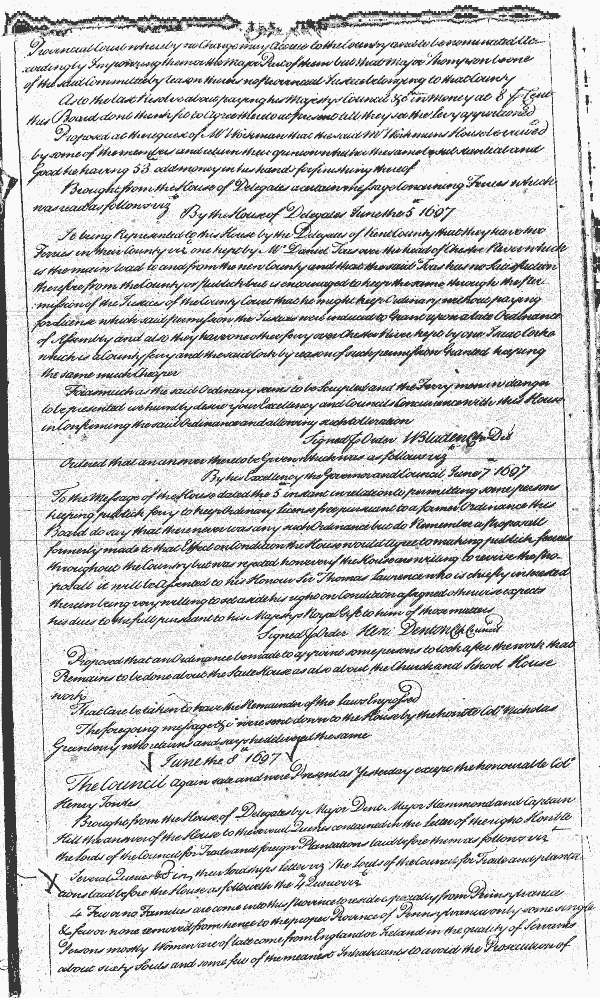 Provincial Court whereby no Charge may Accrue to the Country and to be nominated Ac-
cordingly Impowring them or the major Part of them but that Major Thompson be one
of the said Committee by reason there is no Provincial Justice belonging to that County
As to the last Resolve about paying his Majestys Council &c in money at 8
this Board dont think fit to Agree thereto at present till they see the Levy apportioned
Proposed at the request of Mr Workman that the said Mr Workmans House be viewed
by some of the members and return their opinion whether the same be substantial and
Good he having 53 odd money in his hands for finishing thereof
Brought from the House of Delegates a certain message Concerning Ferries which
was read as follows viz
By the House of Delegates June the 5th 1697
It being Represented to this House by the Delegates of Kent County that they have two
Ferries in their County viz one kept by Mr Daniel Toas over the head of Chester River which
is the main road to and from the new County and that the said Toas has no Satisfaction
therefore from the County or publick but is encouraged to keep the same through the Per-
mission of the Justices of the County Court that he might keep Ordinary without paying
for Licence which said permission the Justices were induced to Grant upon a late Ordinance
of Assembly and also they have one other ferry over Chester River kept by one Isaac Corke
which is a County ferry and the said Cork by reason of such permission Granted keeping
the same much Cheaper
Forasmuch as the said Ordinary seems to be Scrupled and the Ferry men in danger
to be presented we humbly desire your Excellency and Councils Concurrence with this House
in Confirming the said Ordinance and allowing such toleration
Signed p Order W Bladen Clk Del
Ordered that an answer thereto be Given which was as follows viz
By his Excellency the Governor and Council June 7th 1697
To the Message of the House dated the 5th instant in relation to permitting some persons
keeping publick ferry to keep Ordinary Licence free pursuant to a former Ordinance this
Board do say that there never was any such Ordinance but do Remember a Proposall
formerly made to that Effect on Condition the House would agree to making publick ferries
throughout the Country but was rejected however if the House are willing to revive the Pro-
posall it will be Assented to his Honour Sir Thomas Lawrence who is chiefly interested
therein being very willing to set aside his right on Condition aforesaid otherwise expects
his dues to the full pursuant to his Majestys Royal Gift to him of those matters
Signed p Order Hen: Denton Clk Council
Proposed that an Ordinance be made to appoint some persons to look after the work that
Remains to be done about the State House as also about the Church and School House
work
That Care be taken to have the Remainder of the Laws Engrossed
The foregoing messages &c were sent down to the House by the honoble Colo Nicholas
Greenberry who returns and says he delivered the same
June the 8th 1697
The Council again sate and were Present as Yesterday except the honourable Colo
Henry Jowles
Brought from the House of Delegates by Major Dent Major Hammond and Captain
Hill the answer of the House to the several Queries contained in the Letter of the right Honble
the Lords of the Council for Trade and foreign Plantations laid before them as follows viz
Several Queries &c in their Lordships Letter viz The Lords of the Council for Trade and planta-
tions laid before the House as followeth the 4 Quere viz
4 Few or no Families are come into this Province to reside especially from Pennsylvania
& few or none removed from hence to the proper Province of Pennsylvania only some single
Persons mostly Women are of late come from England or Ireland in the quality of Servants
about sixty Souls and some few of the meanest Inhabitants to avoid the Prosecution of